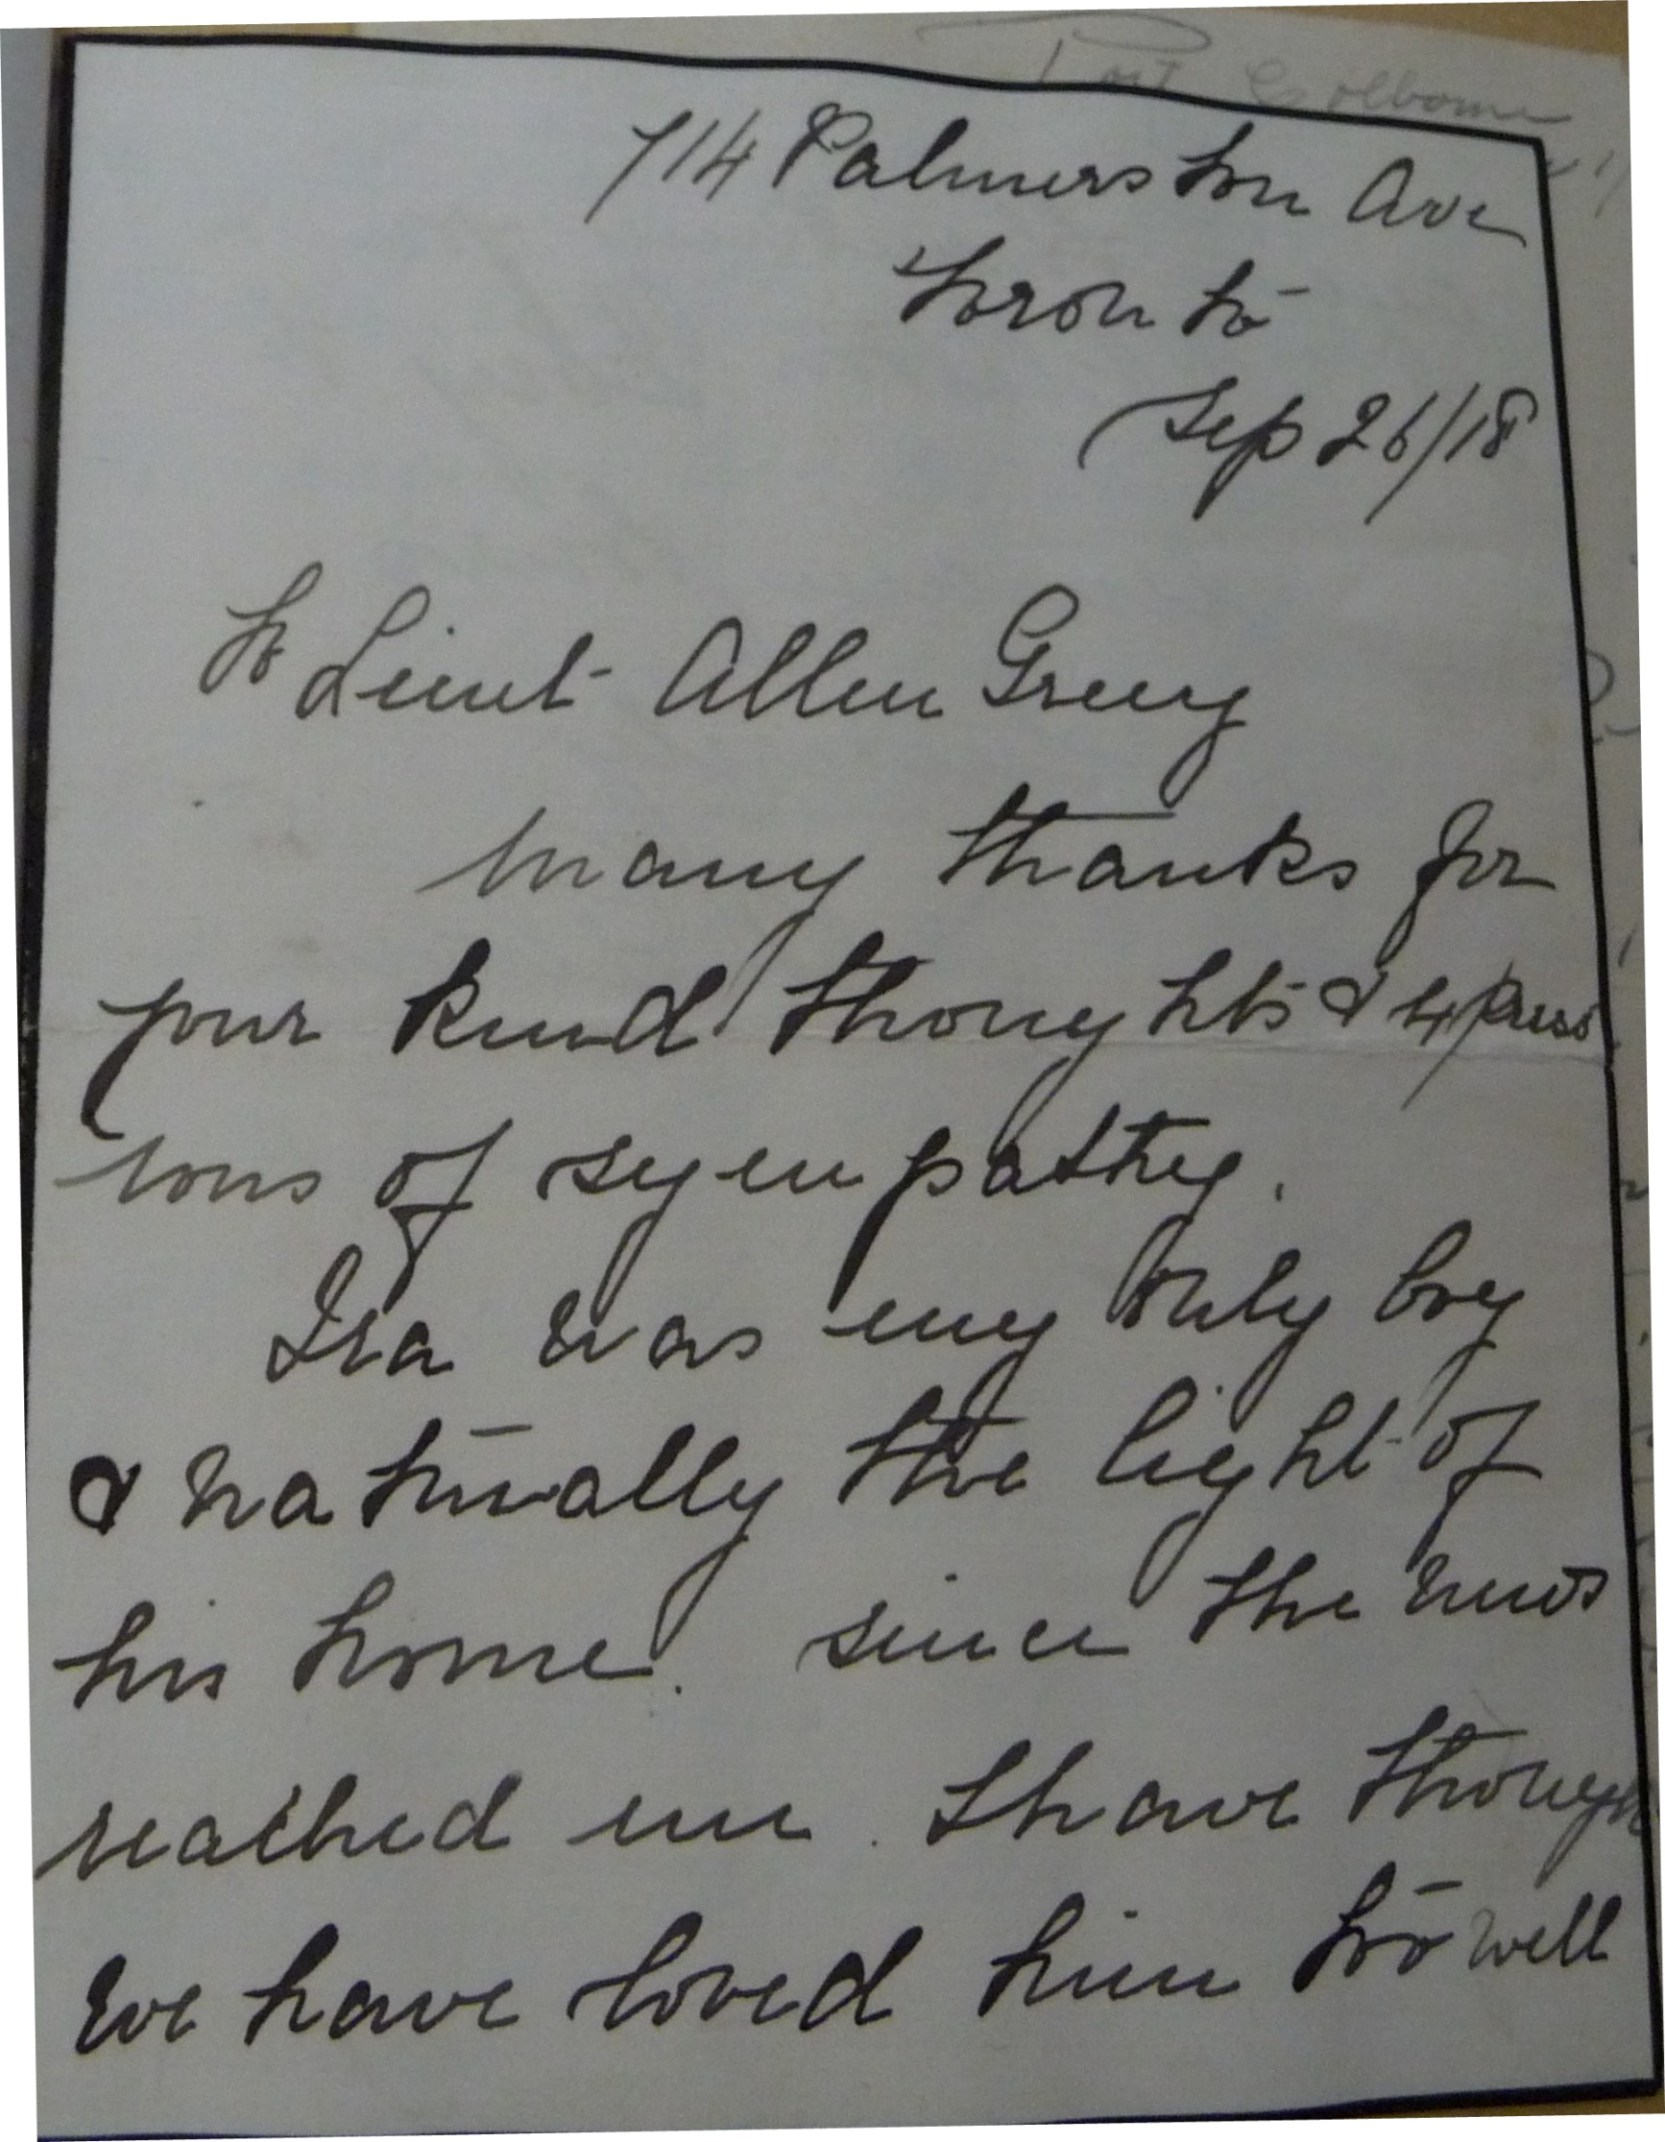 Port Colborne
714 Palmerston Ave
Toronto
Sep 26/18
To Lieut Allen Greey
Many thanks for
your kind thoughts & expres
ions of sympathy.
Ira was my only boy
& naturally the light of
his home. since the news
reached me. I have though
we have loved him too well